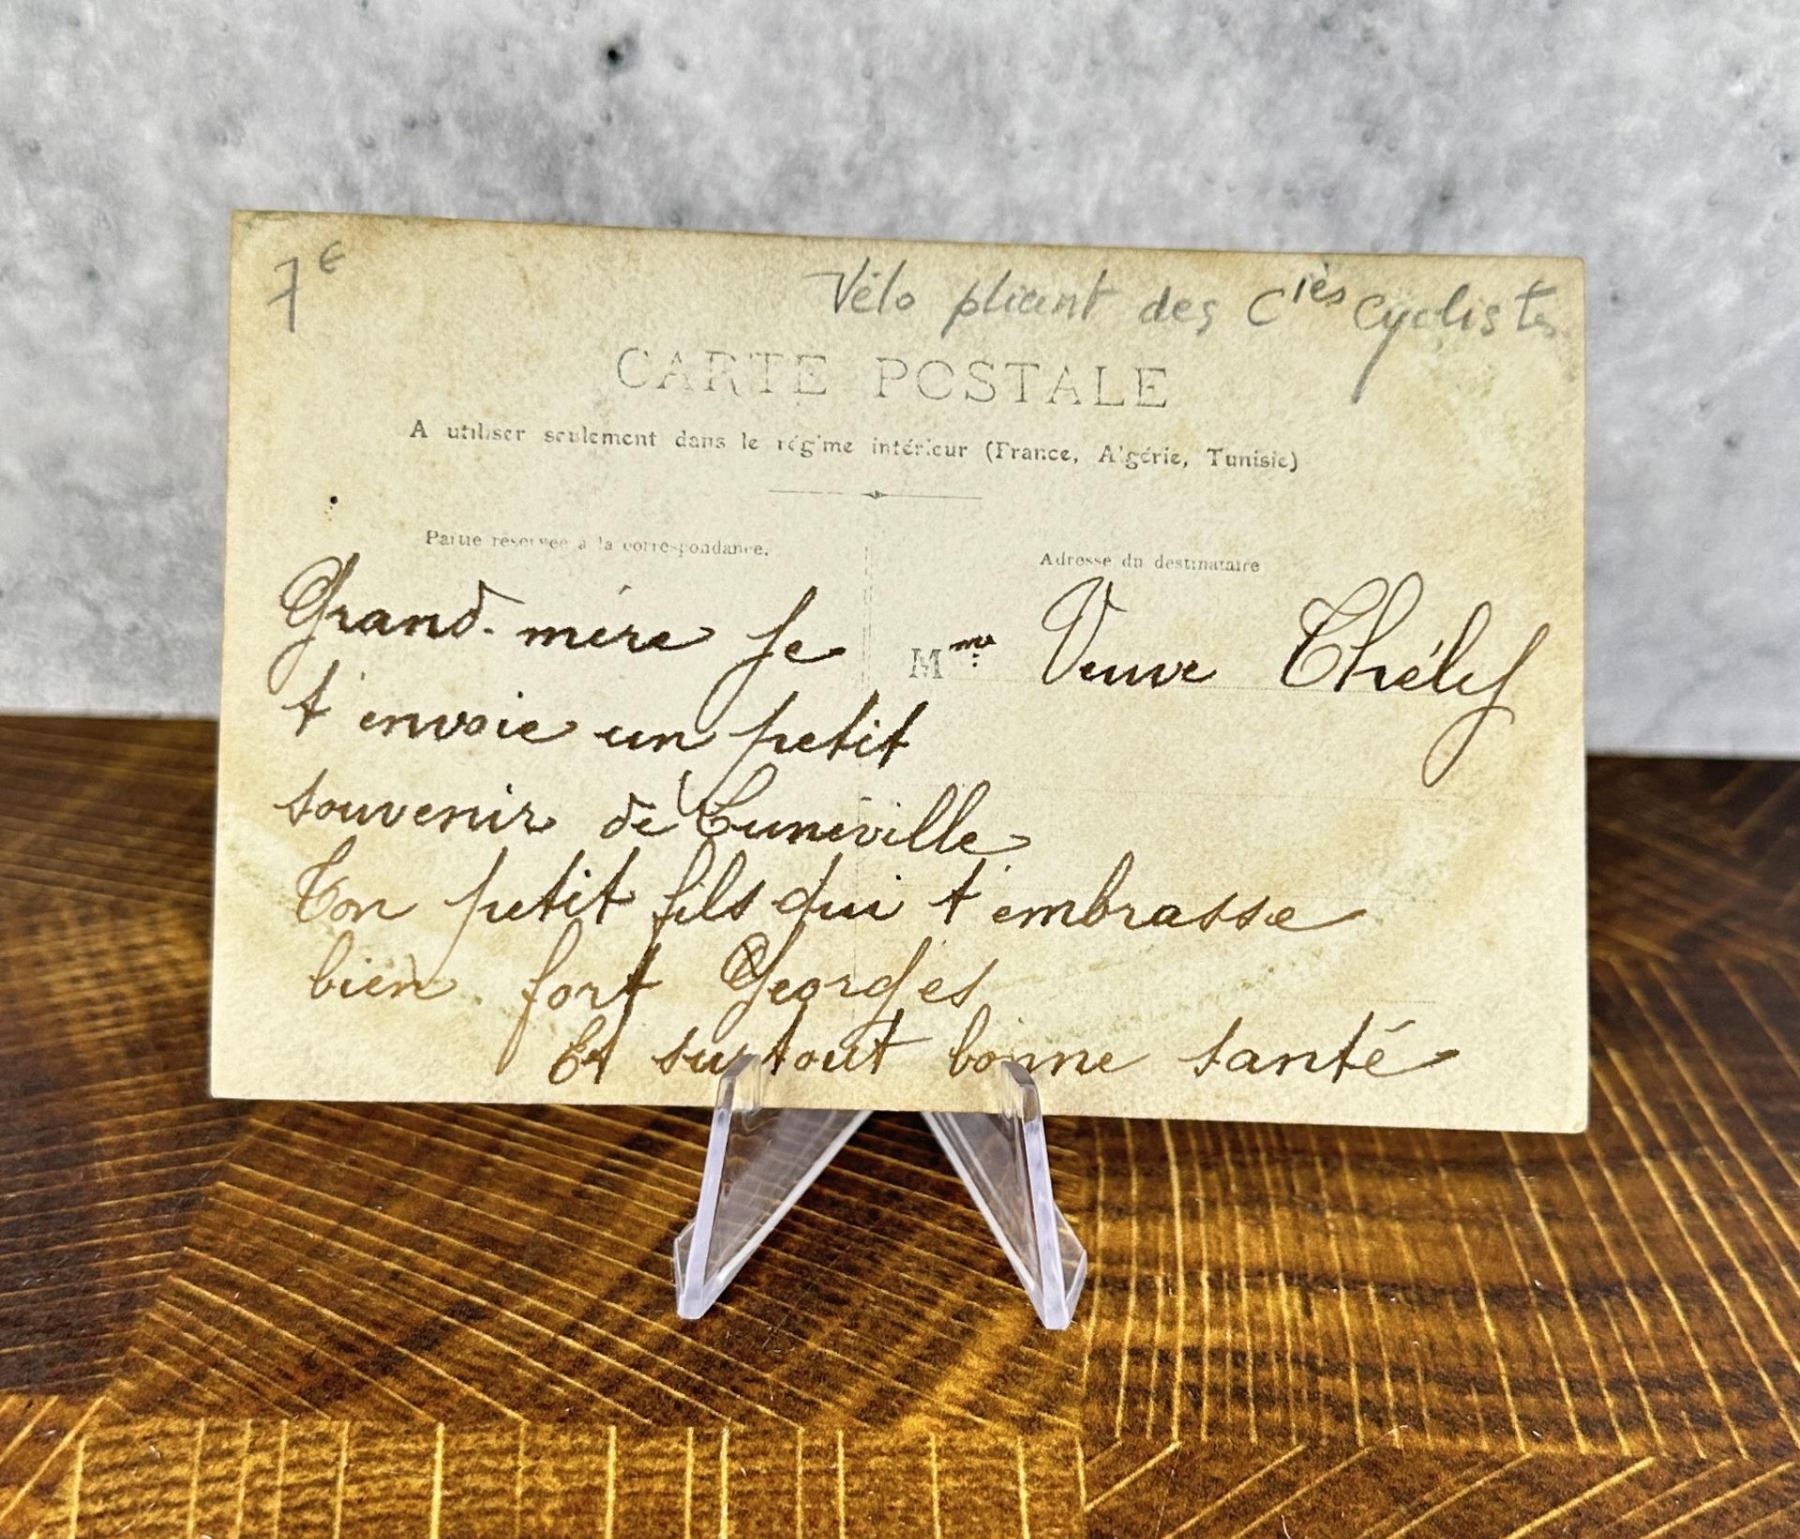 7€
Vélo pliant des Cies Cyclistes
CARTE POSTALE
A utiliser seulement dans le régime intérieur (France, Algérie, Tunisie)
Partie réservée à la correspondance.
Adresse du destinataire
Grand-mère Je
t'envoie un petit
souvenir de Luneville
Ton petit fils qui t'embrasse
bien fort Georges
Et surtout bonne santé
Mme Veuve